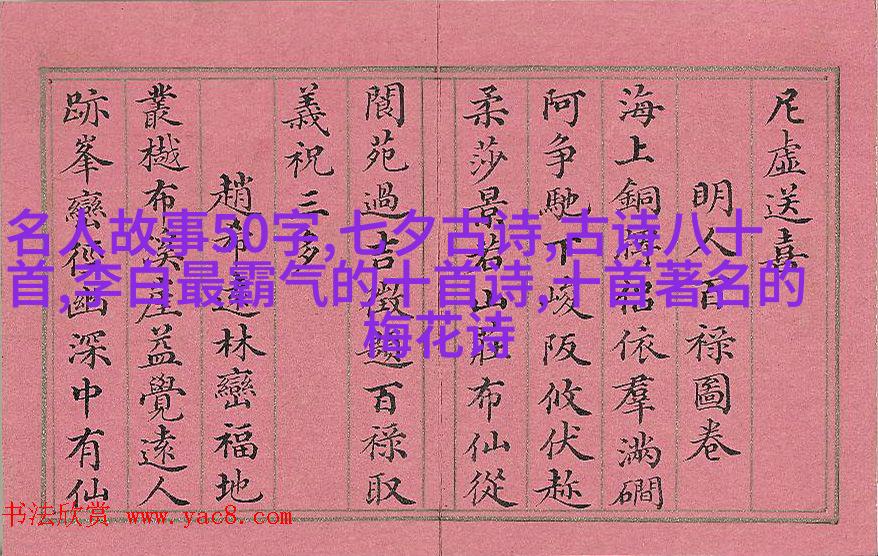 尼虚送嘉
明人百禄圖卷
海上銅 依羣滿磵
阿争馳下峻阪攸伏趂
柔莎景若山 布仙從
閬苑過吉徴 百禄取
義祝三多
趙希遠林巒福地
叢樾布溪崖益覺遠人
跡峯巒 幽深中有仙
名人故事50字,七夕古诗,古诗八十
首,李白最霸气的十首诗,十首著名的
梅花诗
书法欣赏 www.yac8.com